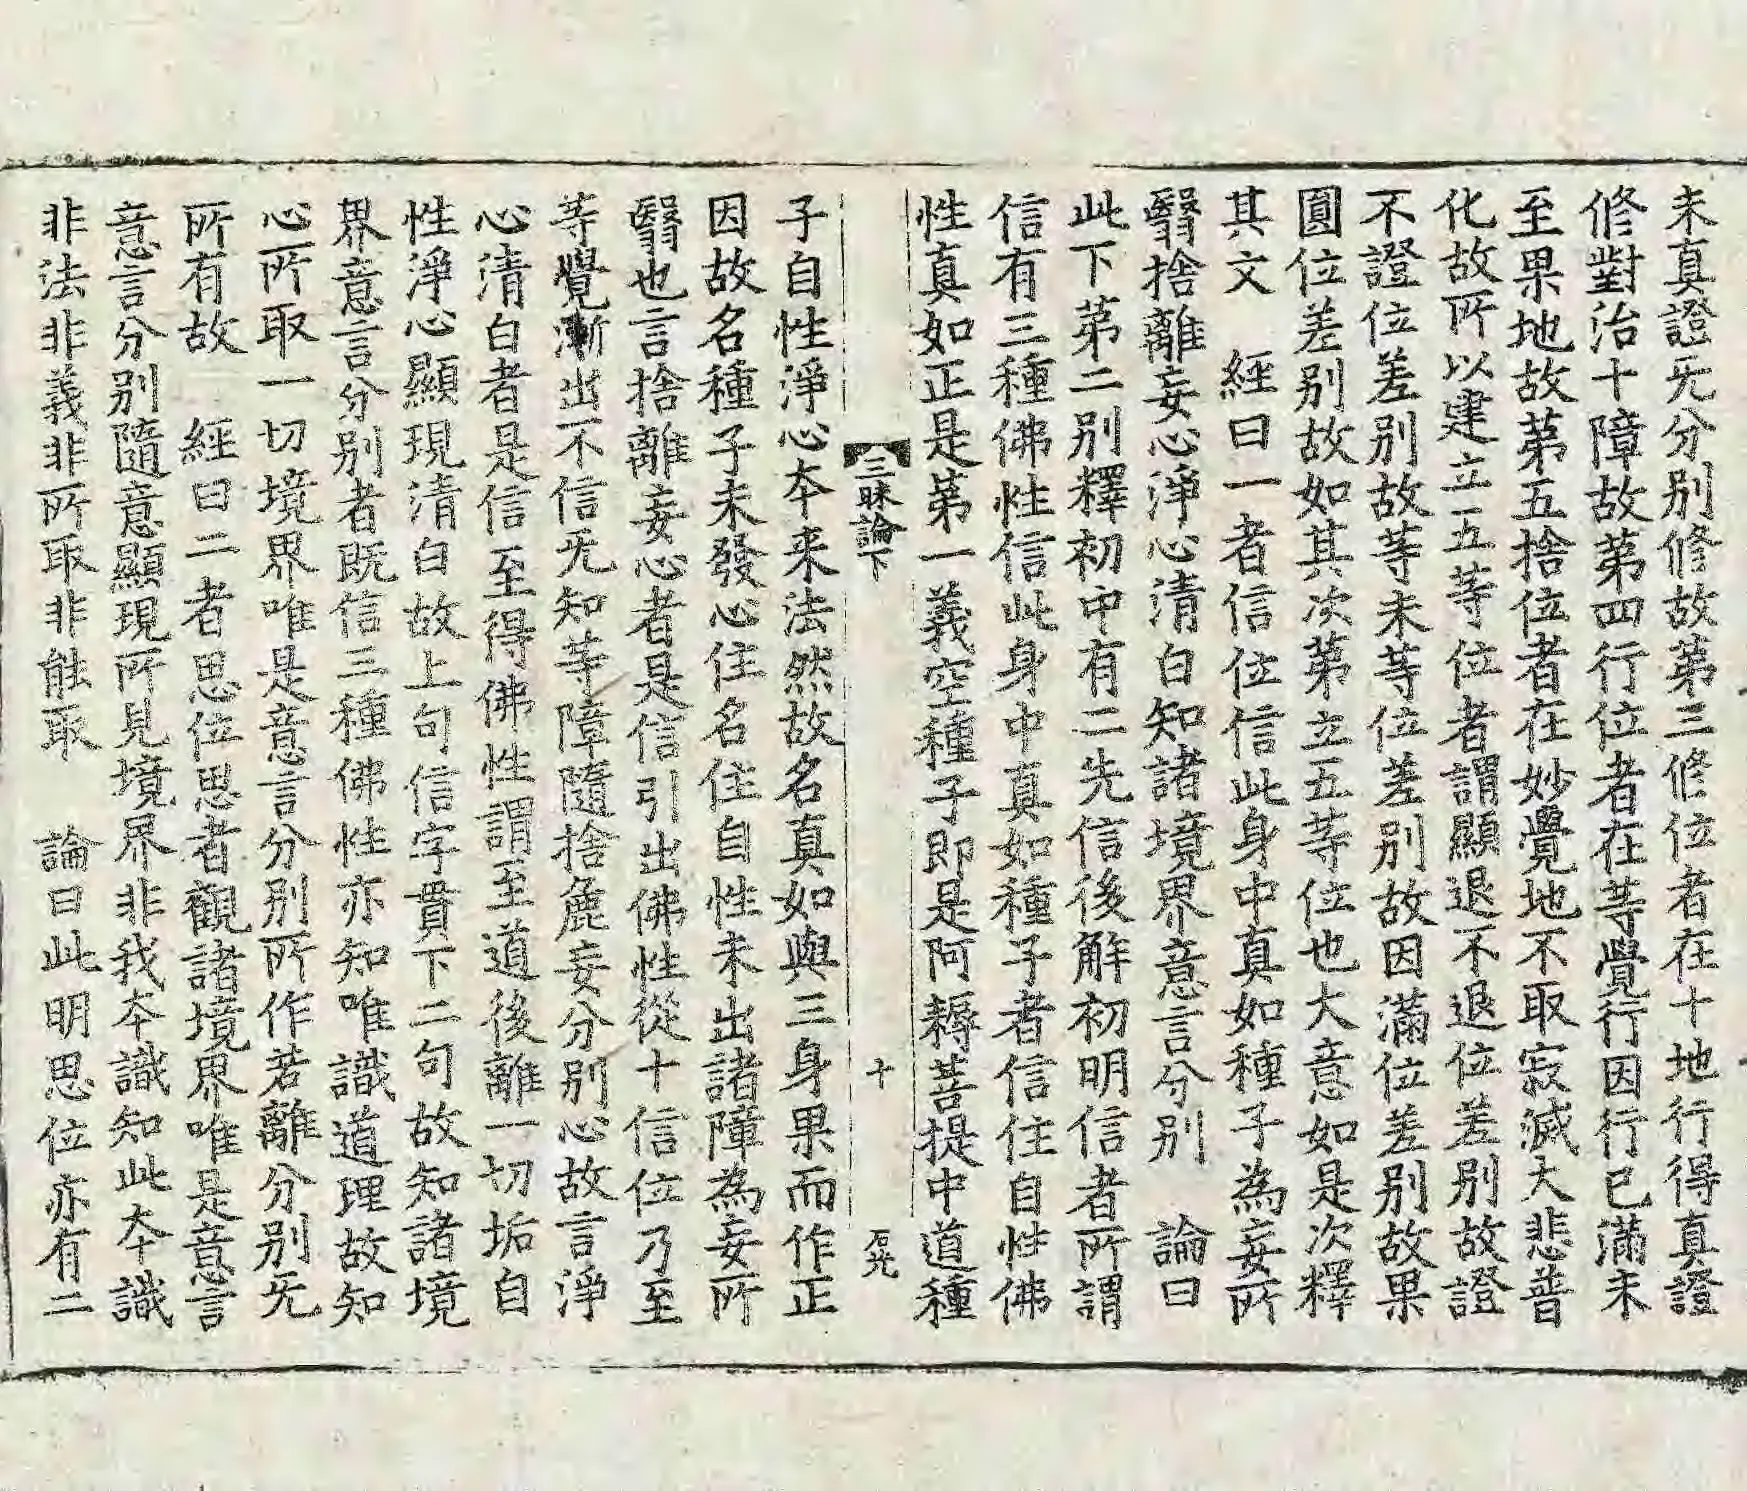 未真證旡分别修故第三修位者在十地行得真證
修對治十障故第四行位者在等覺行因行已滿未
至果地故第五捨位者在妙覺地不取寂滅大悲普
化故所以建立五等位者謂顯退不退位差别故證
不證位差别故等未等位差别故因滿位差别故果
圓位差别故如其次第立五等位也大意如是次釋
其文　經曰一者信位信此身中真如種子為妄所
翳捨離妄心淨心清白知諸境界意言分别　論曰
此下第二别釋初中有二先信後解初明信者所謂
信有三種佛性信此身中真如種子者信住自性佛
性真如正是第一義空種子即是阿耨菩提中道種
三昧論下　十　石光
子自性淨心夲来法然故名真如與三身果而作正
因故名種子未發心住名住自性未出諸障為妄所
翳也言捨離妄心者是信引出佛性從十信位乃至
等覺漸出不信旡知等障隨捨麁妄分别心故言淨
心清白者是信至得佛性謂至道後離一切垢自
性淨心顯現清白故上句信字貫下二句故知諸境
界意言分别者既信三種佛性亦知唯識道理故知
心所取一切境界唯是意言分别所作若離分别旡
所有故　經曰二者思位思者觀諸境界唯是意言
意言分别隨意顯現所見境界非我夲識知此夲識
非法非義非所取非能取　論曰此明思位亦有二